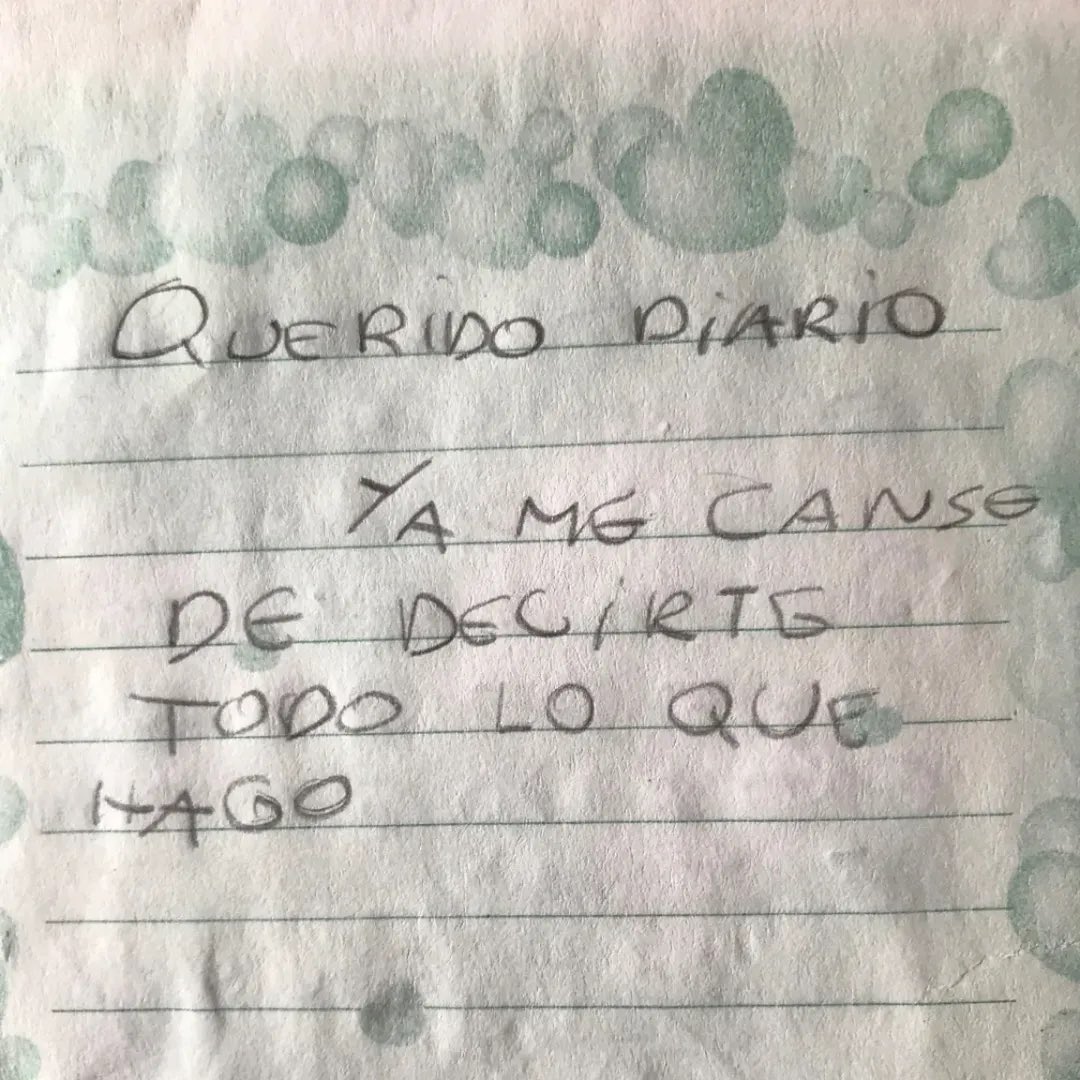 QUERIDO DiARiO
YA ME CANSE
DE DECiRTE
TODO LO QUE
HAGO